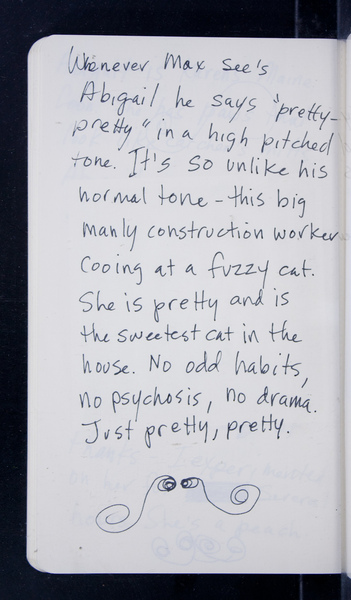 Whenever Max see's
Abigail he says "pretty-
pretty" in a high pitched
tone. It's so unlike his
normal tone - this big
manly construction worker
cooing at a fuzzy cat.
She is pretty and is
the sweetest cat in the
house. No odd habits,
no psychosis, no drama.
Just pretty, pretty.